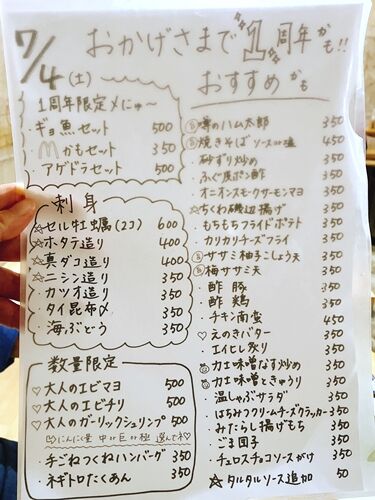 7/4(土)
おかげさまで1周年かも!!
1周年限定メにゅ〜
・ギョ魚セット 500
・かもセット 350
・アゲドラセット 500
刺身
☆セル牡蠣(2コ) 600
☆ホタテ造り 400
☆真ダコ造り 400
☆ニシン造り 350
・カツオ造り 350
・タイ昆布〆 350
・海ぶどう 350
数量限定
♡大人のエビマヨ 500
♡大人のエビチリ 500
♡大人のガーリックシュリンプ 500
にんにく量 中or巨or極 選んでネ♡
・チごねつくねハンバーグ 350
・ネギトロたくあん 350
おすすめかも
噂のハム太郎 350
焼きそば ソースor塩 450
・砂ずり炒め 350
・ふぐ皮ポン酢 350
・オニオンスモークサーモンマヨ 350
☆ちくわ磯辺揚げ 350
・もちもちフライドポテト 350
・カリカリチーズフライ 350
ササミ柚子こしょう天 350
梅ササミ天 350
・酢豚 350
・酢鶏 350
・チキン南蛮 450
♡えのきバター 350
・エイヒレ炙り 350
カニ味噌なす炒め 350
カニ味噌ときゅうり 350
・温しゃぶサラダ 350
・はちみつクリームチーズクラッカー 350
・みたらし揚げもち 350
・ごま団子 350
・チュロスチョコソースがけ 350
☆タルタルソース追加 50